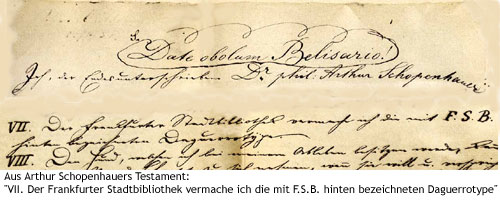 Date obolum Belisario!
Ich, der Endesunterschriebene Dr. phil. Arthur Schopenhauer
VII. Der Frankfurter Stadtbibliothek vermache ich die mit F.S.B.
hinten bezeichneten Daguerrotype
VIII. Den Hund, welchen ich bei meinem Ableben besitzen werde,
Aus Arthur Schopenhauers Testament:
"VII. Der Frankfurter Stadtbibliothek vermache ich die mit F.S.B. hinten bezeichneten Daguerrotype"